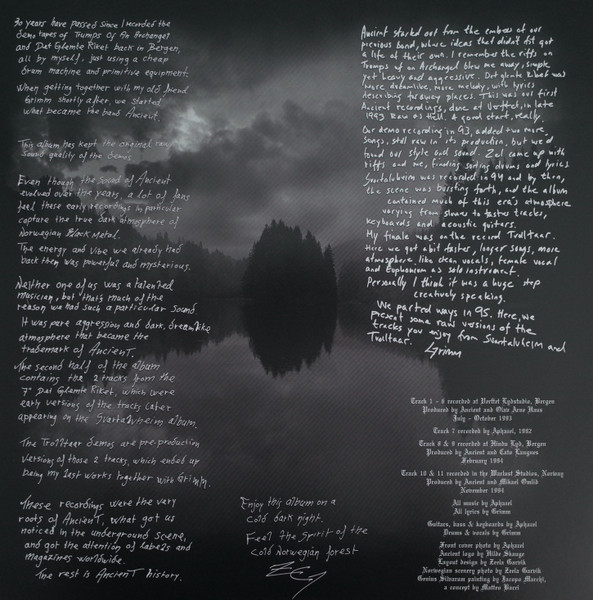 30 years have passed since I recorded the
demo tapes of Trumps Of An Archangel
and Det Glemte Riket back in Bergen,
all by myself, just using a cheap
drum machine and primitive equipment.
When getting together with my old friend
Grimm shortly after, we started
what became the band Ancient.
This album has kept the original raw
sound quality of the demos
Even though the sound of Ancient
evolved over the years, a lot of fans
feel these early recordings in particular
capture the true dark atmosphere of
Norwegian Black Metal.
The energy and vibe we already had
back then was powerful and mysterious.
Neither one of us was a talented
musician, but that's much of the
reason we had such a particular sound.
It was pure aggression and dark, dreamlike
atmosphere that became the
trademark of Ancient.
The second half of the album
contains the 2 tracks from the
7" Det Glemte Riket, which were
early versions of the tracks later
appearing on the Svartalvheim album.
The Trolltaar demos are pre-production
versions of those 2 tracks, which ended up
being my last works together with Grimm.
These recordings were the very
roots of Ancient, what got us
noticed in the underground scene,
and got the attention of labels and
magazines worldwide.
The rest is Ancient history.
Enjoy this album on a
cold dark night.
Feel the Spirit of the
cold Norwegian forest
Ancient started out from the embers of our
previous band, whose ideas that didn't fit got
a life of their own. I remember the riffs on
Trumps of an Archangel blew me away, simple
yet heavy and aggressive. Det glemte riket was
more dreamlike, more melody, with lyrics
describing faraway places. This was our first
Ancient recordings, done at Verftet, in late
1993 Raw as Hell. A good start, really.
Our demo recording in 93, added two more
songs, still raw in its production, but we'd
found our style and sound. Zel came up with
riffs and me, finding sorting drums and lyrics.
Svartalvheim was recorded in 94 and by then,
the scene was bursting forth, and the album
contained much of this era's atmosphere
varying from slower to faster tracks,
keyboards and acoustic guitars.
My finale was on the record Trolltaar.
Here we got a bit faster, longer songs, more
atmosphere, like clean vocals, female vocal
and Euphonium as solo instrument.
Personally I think it was a huge step
creatively speaking.
We parted ways in 95. Here, we
present some raw versions of the
tracks you enjoy from Svartalvheim and
Trolltaar.
Grimm
Track 1 - 6 recorded at Verftet Lydstudio, Bergen
Produced by Ancient and Olav Arne Haus
July - October 1993
Track 7 recorded by Aphazel, 1992
Track 8 & 9 recorded at Hindu Lyd, Bergen
Produced by Ancient and Cato Langnes
February 1994
Track 10 & 11 recorded in the Warlout Studios, Norway
Produced by Ancient and Mikael
November 1994
All music by Aphazel
All lyrics by Grimm
Guitars, bass & keyboards by Aphazel
Drums & vocals by Grimm
Front cover photo by Aphazel
Ancient logo by Hilde Skauge
Layout design by Zeela Gorvik
Norwegian scenery photo by Zeela Gorvik
Genius Silvarum painting by Jacopo Marchi,
a concept by Matteo Barri